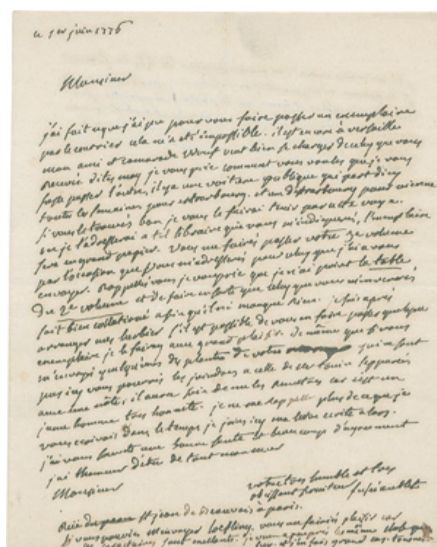 ce 1er juin 1776
Monsieur
j'ai fait ce que j'ai pu pour vous faire passer un exemplaire
par le courrier cela m'a été impossible. il est encore à versaille
mon ami et camarade veut bien se charger de celuy que vous
dites moy je vous prie comment vous voulez que je vous
fasse passer l'autre, il y a une voiture publique qui part d'icy
toutes les semaines pour strasbourg. et de strasbourg pour vienne
si vous le trouvés bon je vous le ferai tenir par cette voye.
ou je l'adresserai à tel libraire que vous m'indiquerez, l'exemplaire
sera en grand papier. vous me faires passer votre 3e volume
par l'occasion que vous m'adresserez pour celuy que j'ai à vous
envoyer. rappellés vous je vous prie que je n'ai point la table
du 2e volume et de faire en sorte que celuy que vous m'enverrés
soit bien collationné afin qu'il n'y manque rien. je suis après
arranger mes herbier s'il est possible de vous en faire passer quelque
exemplaire je le ferai avec grand plaisir de même que si vous
m'envoyé quelqu'unes des plantes de votre
pas icy vous pourrés les joindre à celle de
avec une note; il aura soin de me les remettre car c'est un
jeune homme très honnete. je ne me rappelle plus de ce que je
vous écrivais dans le temps je joins icy ma lettre écrite alors.
je vous souhaite une bonne santé et beaucoup d'agrement
j'ai l'honneur d'être de tout mon coeur
Monsieur
votre très humble et très
obéissant serviteur
Rue du et jean de Beauvais à paris.
si vous pouviés m'envoyer Loefling, vous me feriés plaisir car